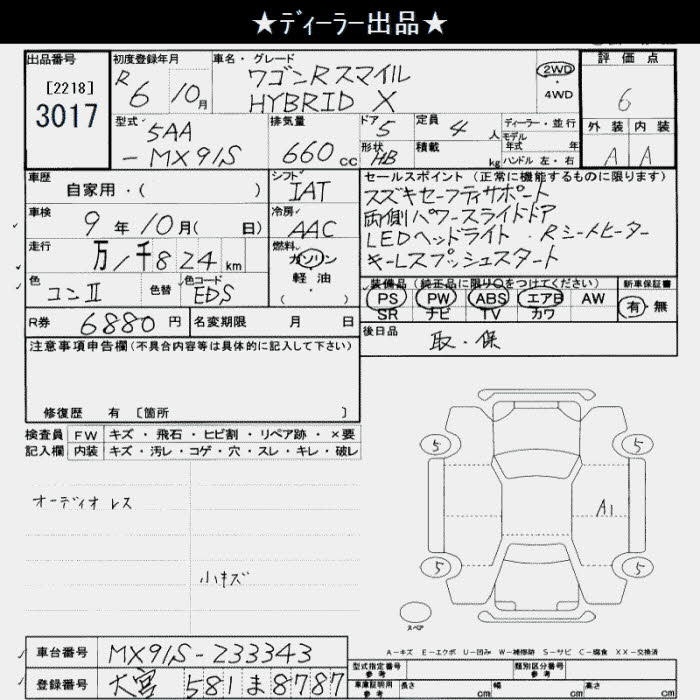 ★ディーラー出品★
出品番号 初度登録年月 車名・グレード 評価点
[2218] R 6 10月 ワゴンRスマイル 2WD 6
3017 HYBRID X ・4WD
型式 5AA 排気量 ドア 5 定員 4人 ディーラー・並行 外装 内装
-MX91S 660cc 形状 HB 積載 kg モデル年式 年 ハンドル 左・右 A A
車歴 自家用・( ) シフト IAT セールスポイント(正常に機能するものに限ります)
車検 9年10月( 日) 冷房 AAC スズキセーフティサポート
両側パワースライドドア
走行 万1千824km 燃料 ガソリン LEDヘッドライト・Rシートヒーター
色 コンⅡ 色替 色コード EDS 軽油 キーレスプッシュスタート
・( ) 装備品(純正品に限り○をつけてください) 新車保証書
PS PW ABS エアB AW 有・無
R券 6880円 名変期限 月 日 SR ナビ TV カワ
注意事項申告欄(不具合内容等は具体的に記入して下さい) 後日品 取・保
修復歴 有 [箇所 ]
検査員 FW キズ・飛石・ヒビ割・リペア跡・×要
記入欄 内装 キズ・汚レ・コゲ・穴・スレ・キレ・破レ
5 5
オーディオレス A1
小キズ 5 5
スペア
A-キズ E-エクボ U-凹み W-補修跡 S-サビ C-腐食 XX-交換済
車台番号 MX91S-233343 型式指定番号 参考 類別区分番号 参考
登録番号 大宮 581 ま 8787 車庫証明用 参考 長さ cm 幅 cm 高さ cm